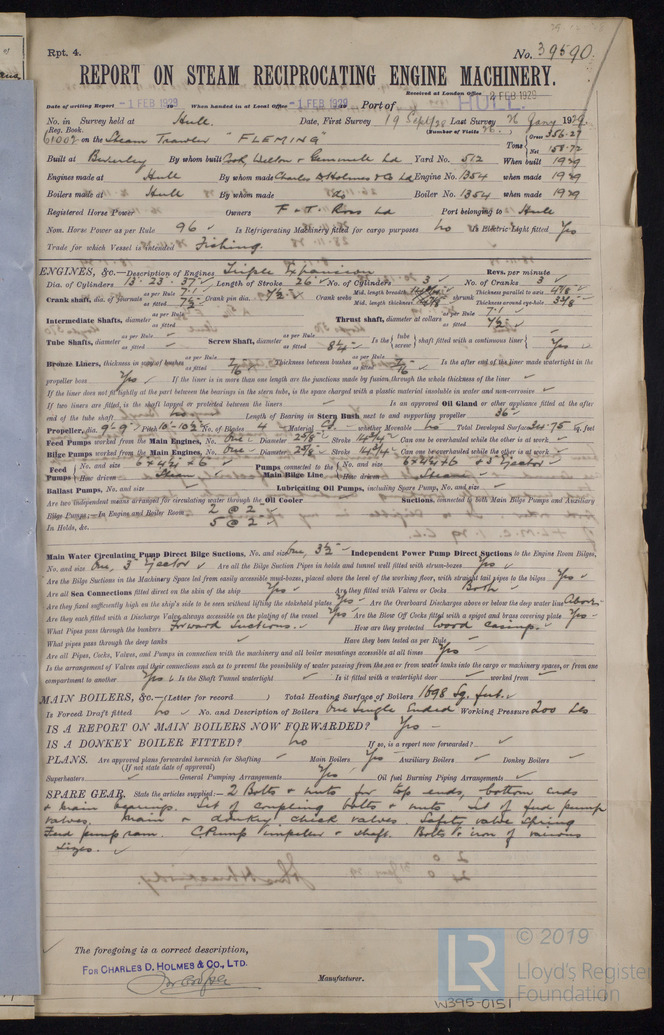 Rpt. 4.
No. 39590
REPORT ON STEAM RECIPROCATING ENGINE MACHINERY.
Received at London Office 2 FEB 1929
Date of writing Report -1 FEB 1929 When handed in at Local Office -1 FEB 1929 Port of HULL.
No. in Survey held at Hull. Date, First Survey 19 Sept/28 Last Survey 1929
Reg. Book. (Number of Visits
on the Steam Trawler "FLEMING" Tons Gross 356.27 Net 158.72
Built at Beverley By whom built Cook Welton & Gemmell Ld Yard No. 512 When built 1929
Engines made at Hull By whom made Charles D Holmes & Co Ld Engine No. 1354 when made 1929
Boilers made at Hull By whom made do Boiler No. 1354 when made 1929
Registered Horse Power Owners F & T. Ross Ld Port belonging to Hull
Nom. Horse Power as per Rule 96 Is Refrigerating Machinery fitted for cargo purposes no Is Electric Light fitted Yes
Trade for which Vessel is intended Fishing
ENGINES, &c.—Description of Engines Triple Expansion Revs. per minute
Dia. of Cylinders 13"-23"-37" Length of Stroke 26" No. of Cylinders 3 No. of Cranks 3
Crank shaft, dia. of journals as per Rule 7.1 as fitted 7½" Crank pin dia. 7½" Crank webs Mid. length breadth Mid. length thickness 4⅞" shrunk Thickness parallel to axis 4⅞" Thickness around eye-hole
Intermediate Shafts, diameter as per Rule as fitted Thrust shaft, diameter at collars as per Rule 7.1 as fitted 7½"
Tube Shafts, diameter as per Rule as fitted Screw Shaft, diameter as per Rule as fitted 8¼" Is the tube screw shaft fitted with a continuous liner Yes
Bronze Liners, thickness in way of bushes as per Rule as fitted Thickness between bushes as per Rule as fitted Is the after end of the liner made watertight in the
propeller boss Yes If the liner is in more than one length are the junctions made by fusion through the whole thickness of the liner
If the liner does not fit tightly at the part between the bearings in the stern tube, is the space charged with a plastic material insoluble in water and non-corrosive
If two liners are fitted, is the shaft lapped or protected between the liners Is an approved Oil Gland or other appliance fitted at the after
end of the tube shaft no Length of Bearing in Stern Bush next to and supporting propeller 36"
Propeller, dia. 9'-9" Pitch 10'-10½" No. of Blades 4 Material C.I. whether Moveable no Total Developed Surface 34.75 sq. feet
Feed Pumps worked from the Main Engines, No. One Diameter 2⅝" Stroke 14¾" Can one be overhauled while the other is at work
Bilge Pumps worked from the Main Engines, No. One Diameter 2⅝" Stroke 14¾" Can one be overhauled while the other is at work
Feed Pumps No. and size 6 x 4¼ x 6 How driven Steam Pumps connected to the Main Bilge Line No. and size 6 x 4¼ x 6 & 3" Ejector How driven Steam
Ballast Pumps, No. and size Lubricating Oil Pumps, including Spare Pump, No. and size
Are two independent means arranged for circulating water through the Oil Cooler Suctions, connected to both Main Bilge Pumps and Auxiliary
Bilge Pumps:—In Engine and Boiler Room 2 @ 2"
In Holds, &c. 5 @ 2"
Main Water Circulating Pump Direct Bilge Suctions, No. and size One, 3½" Independent Power Pump Direct Suctions to the Engine Room Bilges,
No. and size One, 3" Ejector Are all the Bilge Suction Pipes in holds and tunnel well fitted with strum-boxes Yes
Are the Bilge Suctions in the Machinery Space led from easily accessible mud-boxes, placed above the level of the working floor, with straight tail pipes to the bilges Yes
Are all Sea Connections fitted direct on the skin of the ship Yes Are they fitted with Valves or Cocks Both
Are they fixed sufficiently high on the ship's side to be seen without lifting the stokehold plates Yes Are the Overboard Discharges above or below the deep water line Above
Are they each fitted with a Discharge Valve always accessible on the plating of the vessel Yes Are the Blow Off Cocks fitted with a spigot and brass covering plate Yes
What Pipes pass through the bunkers Forward Suctions. How are they protected Wood casing.
What pipes pass through the deep tanks Have they been tested as per Rule
Are all Pipes, Cocks, Valves, and Pumps in connection with the machinery and all boiler mountings accessible at all times Yes
Is the arrangement of Valves and their connections such as to prevent the possibility of water passing from the sea or from water tanks into the cargo or machinery spaces, or from one
compartment to another Yes Is the Shaft Tunnel watertight Is it fitted with a watertight door worked from
MAIN BOILERS, &c.—(Letter for record ) Total Heating Surface of Boilers 1698 Sq. feet.
Is Forced Draft fitted no No. and Description of Boilers One Single Ended Working Pressure 200 Lbs
IS A REPORT ON MAIN BOILERS NOW FORWARDED? Yes
IS A DONKEY BOILER FITTED? no If so, is a report now forwarded?
PLANS. Are approved plans forwarded herewith for Shafting Main Boilers Yes Auxiliary Boilers Donkey Boilers
(If not state date of approval)
Superheaters General Pumping Arrangements Yes Oil fuel Burning Piping Arrangements
SPARE GEAR. State the articles supplied:— 2 Bolts & nuts for top ends, bottom ends
& main bearings. Set of coupling bolts & nuts. Set of feed pump
valves. Main & donkey check valves. Safety valve spring
Feed pump ram. C.Pump impeller & shaft. Bolts & iron of various
sizes.
The foregoing is a correct description,
FOR CHARLES D. HOLMES & CO., LTD.
Manufacturer.
LR
© 2019
Lloyd's Register
Foundation
W395-0151